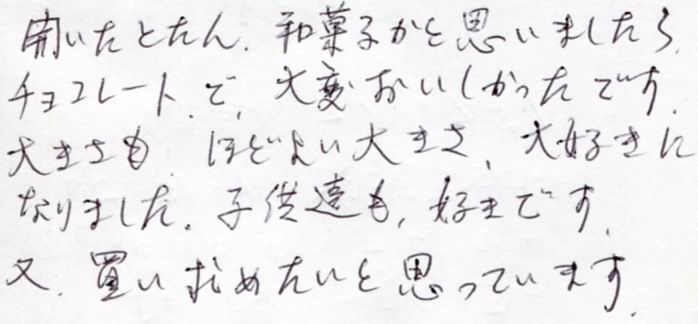 開いたとたん、和菓子かと思いましたら
チョコレートで、大変おいしかったです。
大きさも、ほどよい大きさ、大好きに
なりました。子供達も、好きです。
又、買い求めたいと思っています。